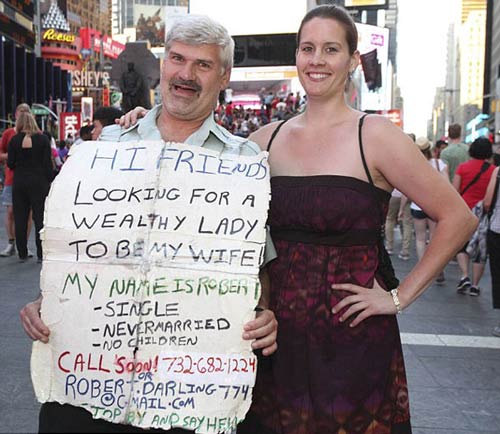 Reese's
HERSHEY'S
HI FRIENDS
LOOKING FOR A
WEALTHY LADY
TO BE MY WIFE!
MY NAME IS ROBERT
-SINGLE
-NEVER MARRIED
-NO CHILDREN
CALL SOON! 732-682-1224
OR
ROBERT.DARLING774
@G-MAIL.COM
TOP BY AND SAY HELLO